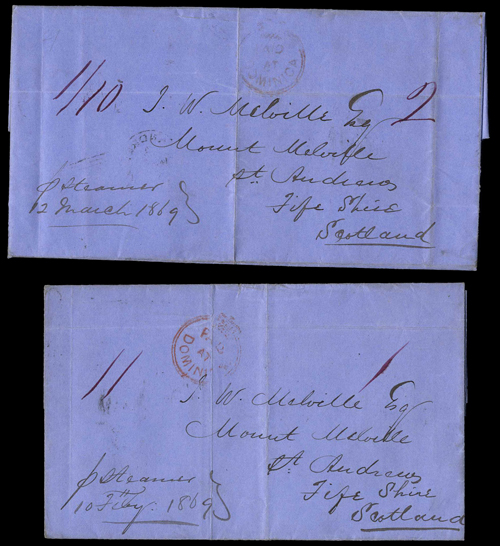 PAID
AT
DOMINICA
1/10
J. W. Melville Esq
2
Mount Melville
St. Andrews
Fife Shire
Scotland
p Steamer
12 March 1869
PAID
AT
DOMINICA
11
1
J. W. Melville Esq
Mount Melville
St. Andrews
Fife Shire
Scotland
p Steamer
10 Feby. 1869